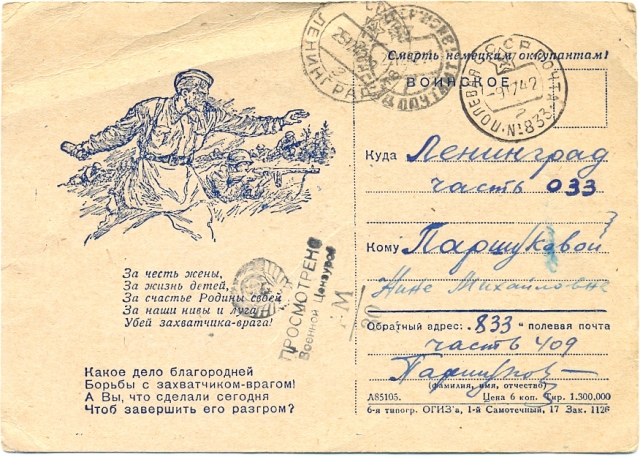 ЛЕНИНГРАД
Смерть немецким оккупантам!
ВОИНСКОЕ
СССР ПОЧТА
ПОЛЕВАЯ № 833
Куда Ленинград
часть 033
Кому Паршуковой
Нине Михайловне
За честь жены,
За жизнь детей,
За счастье Родины своей
За наши нивы и луга
Убей захватчика-врага!
ПРОСМОТРЕНО
Военной Цензурой
Обратный адрес: 833 полевая почта
часть 409
Паршуков
(фамилия, имя, отчество)
Какое дело благородней
Борьбы с захватчиком-врагом!
А Вы, что сделали сегодня
Чтоб завершить его разгром?
Л85105. Цена 6 коп. Тир. 1.300.000
6-я типогр. ОГИЗ'а, 1-й Самотечный, 17 Зак. 1126